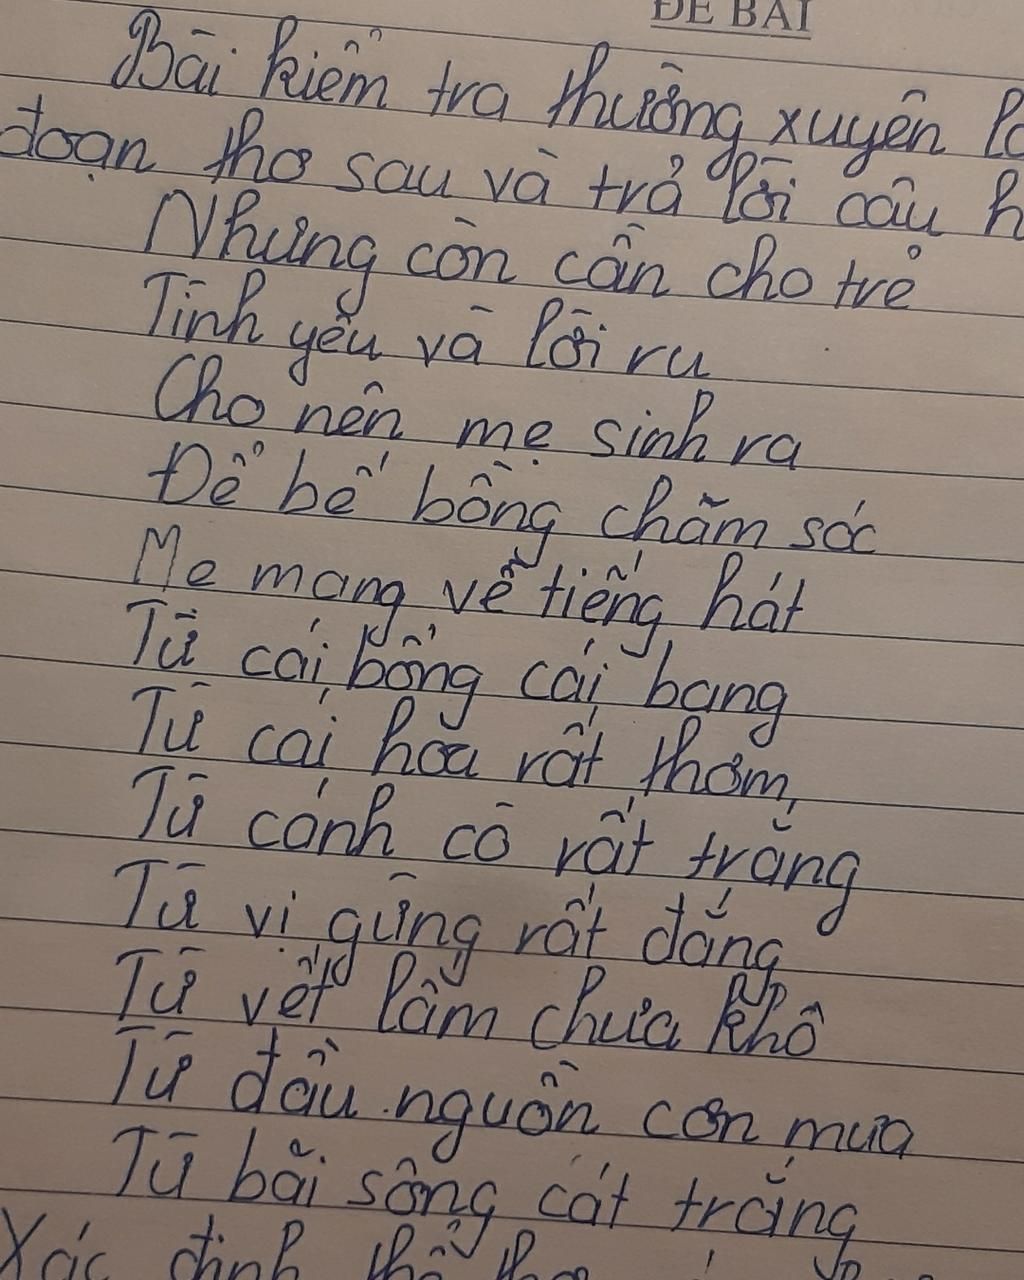 ĐỀ BÀI
Bài kiểm tra thường xuyên
đoạn thơ sau và trả lời câu
Nhưng còn cần cho trẻ
Tình yêu và lời ru
Cho nên mẹ sinh ra
Để bế bồng chăm sóc
Mẹ mang về tiếng hát
Từ cái bống cái bang
Từ cái hoa rất thơm
Từ cánh cò rất trắng
Từ vị gừng rất đắng
Từ vết lấm chưa khô
Từ đầu nguồn cơn mưa
Từ bãi sông cát trắng
Xác định thể thơ